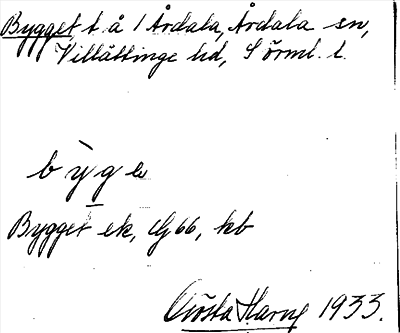 Bygget, t. å 1 Årdala, Årdala sn,
Villåttinge hd, Sörml. l.
bỳge
Bygget ek, Gj66, kb
Gösta Harng 1933.